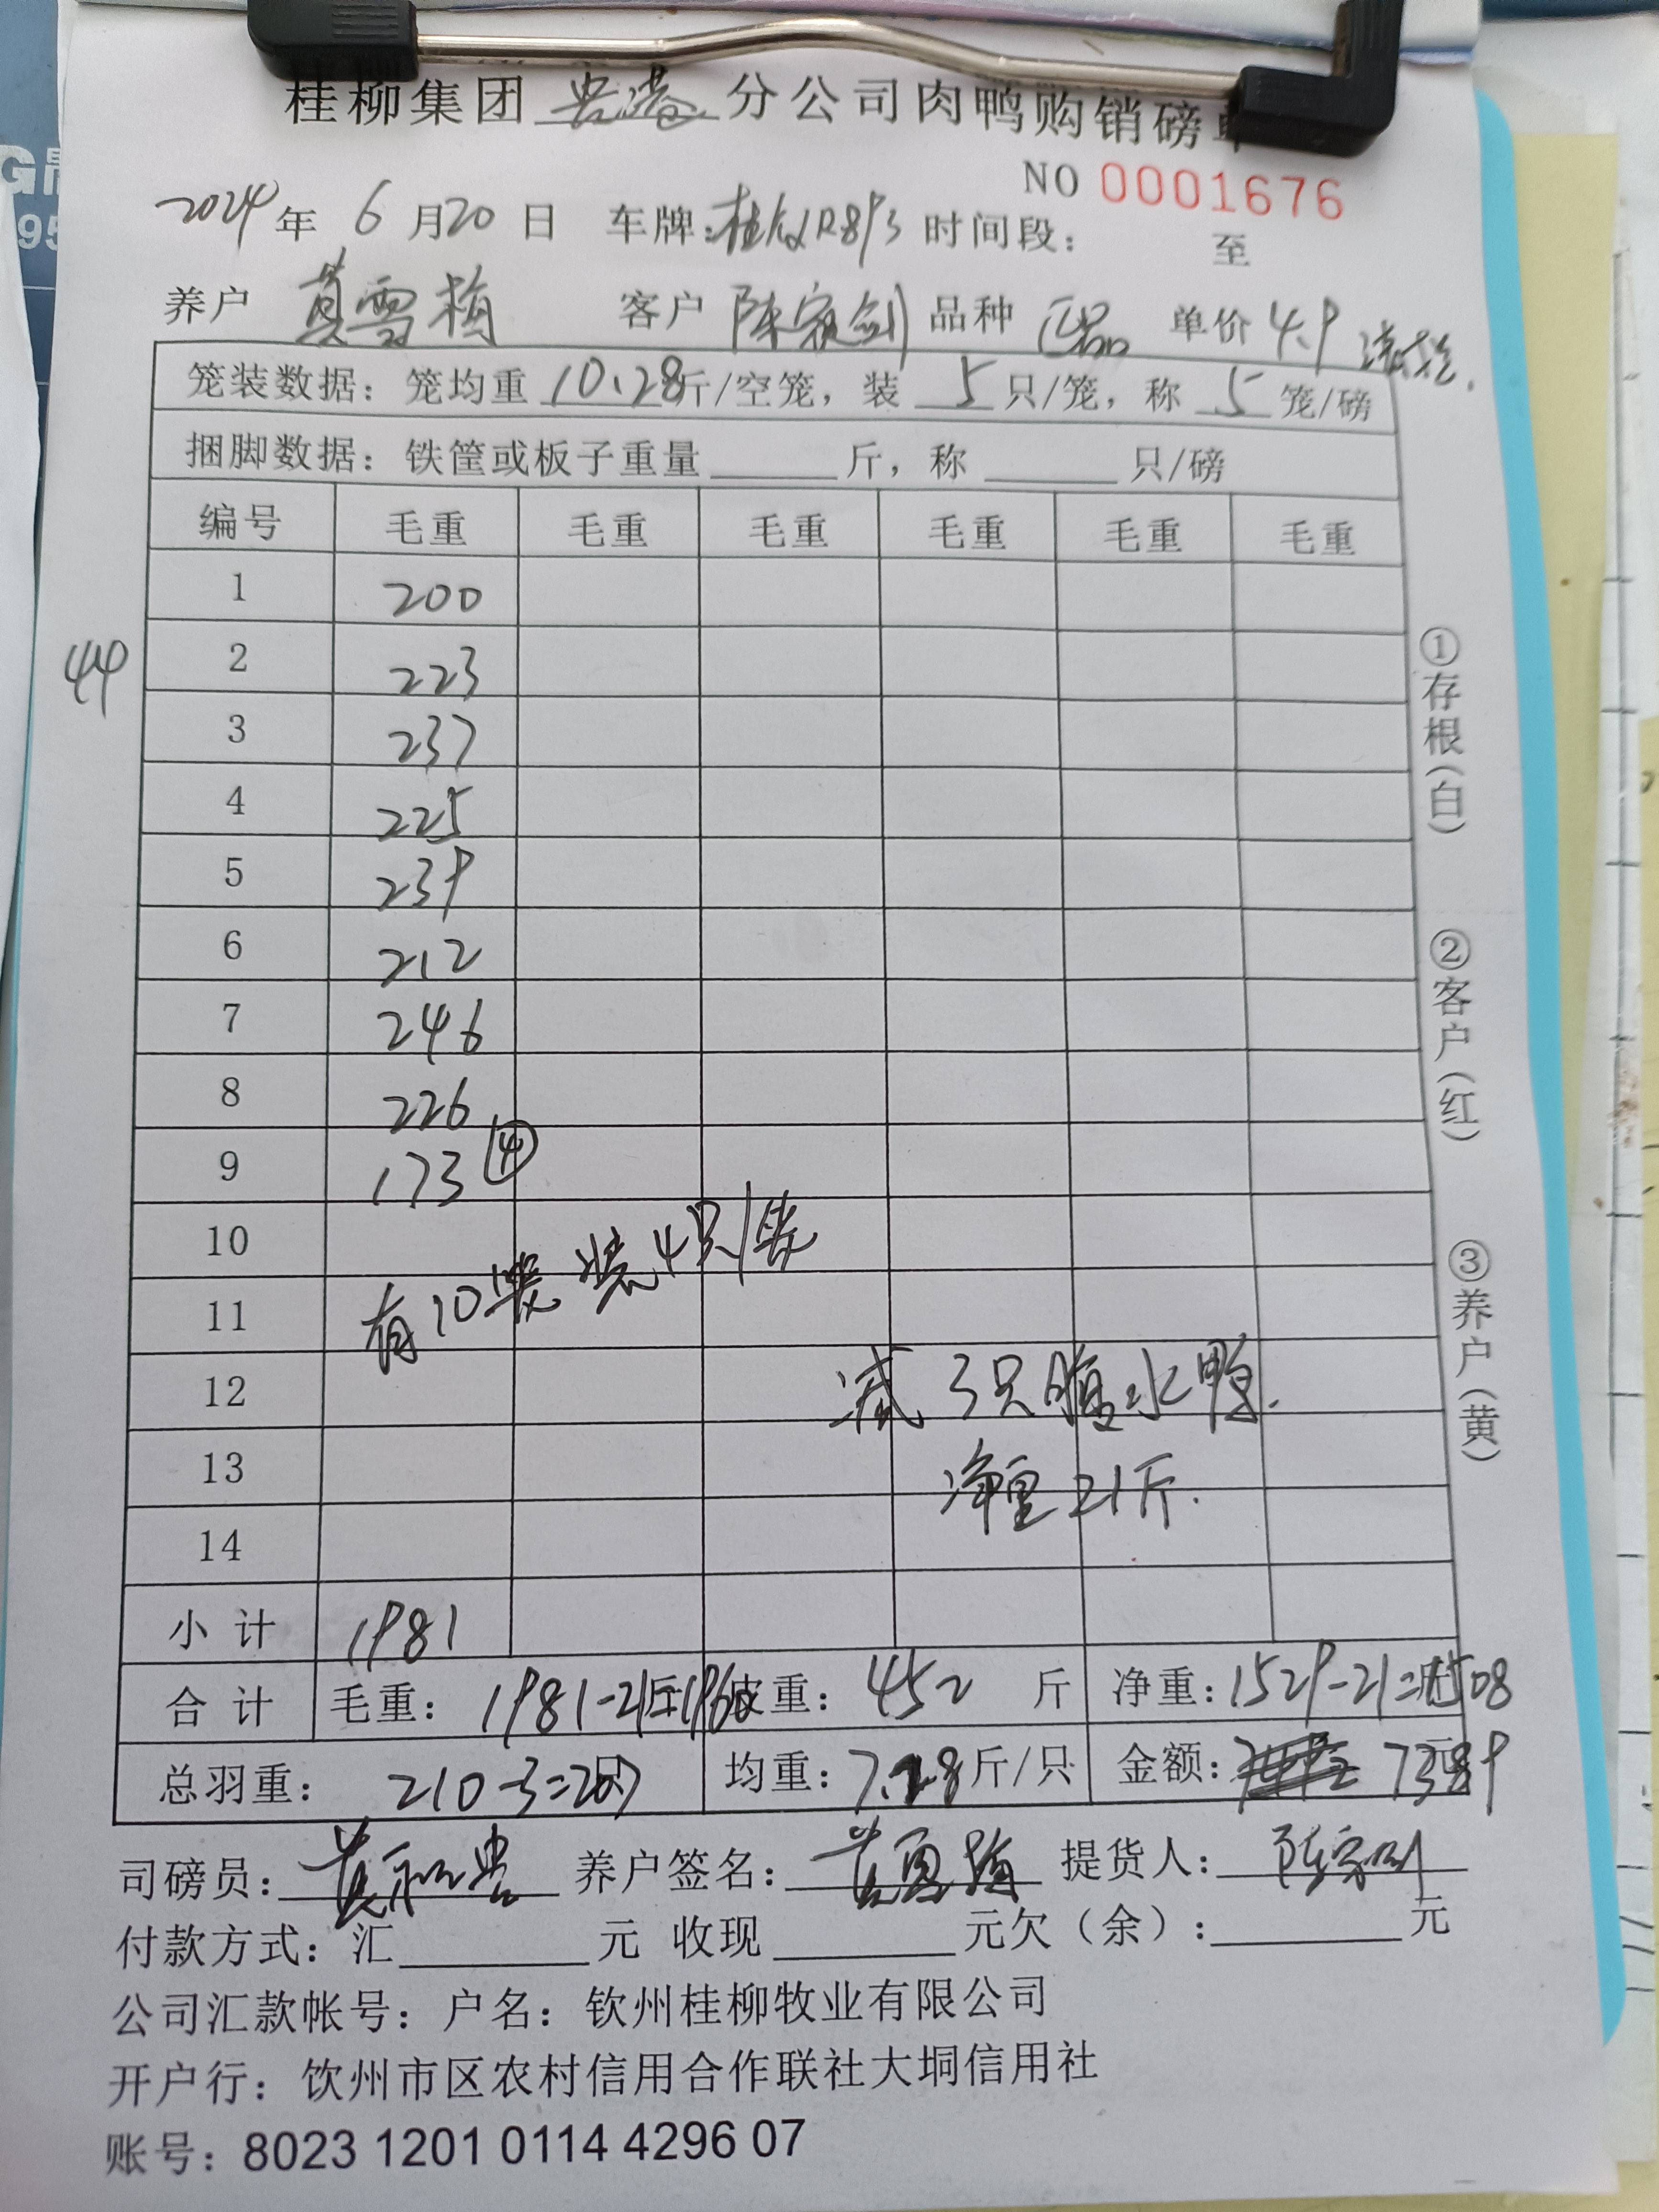 桂柳集团 贵港 分公司肉鸭购销磅单
NO 0001676
2024年 6月20日 车牌: 时间段: 至
养户 黄雪梅 客户 陈家剑 品种 正品 单价 4.9
笼装数据: 笼均重 10.28斤/空笼, 装 5 只/笼, 称 5 笼/磅
捆脚数据: 铁筐或板子重量 斤, 称 只/磅
编号 毛重 毛重 毛重 毛重 毛重 毛重
1 200
2 223
44
3 237
4 225
5 239
6 212
7 246
8 226
9 173 ④
10
有10笼装4只/笼
11
12
减3只腹水鸭.
13
净重21斤.
14
小计 1981
合计 毛重: 1981-21=1960 皮重: 452 斤 净重: 1529-21=1508
总羽重: 210-3=207 均重: 7.28斤/只 金额: 7389
司磅员: 养户签名: 黄雪梅 提货人: 陈家剑
付款方式: 汇 元 收现 元欠(余): 元
公司汇款帐号: 户名: 钦州桂柳牧业有限公司
开户行: 钦州市区农村信用合作联社大垌信用社
账号: 8023 1201 0114 4296 07
①存根(白)
②客户(红)
③养户(黄)